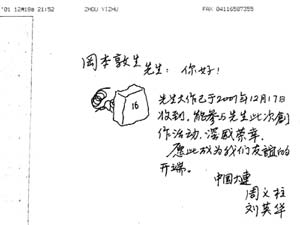 '01 12月18日 21:52 ZHOU YIZHU FAX 04116507355
岡本敦生先生：你好！
16
先生大作已于2001年12月17日
收到，能参与先生此次創
作活动，深感荣幸。
愿此成为我们友誼的
开端。
中国大連
周义柱
刘英华